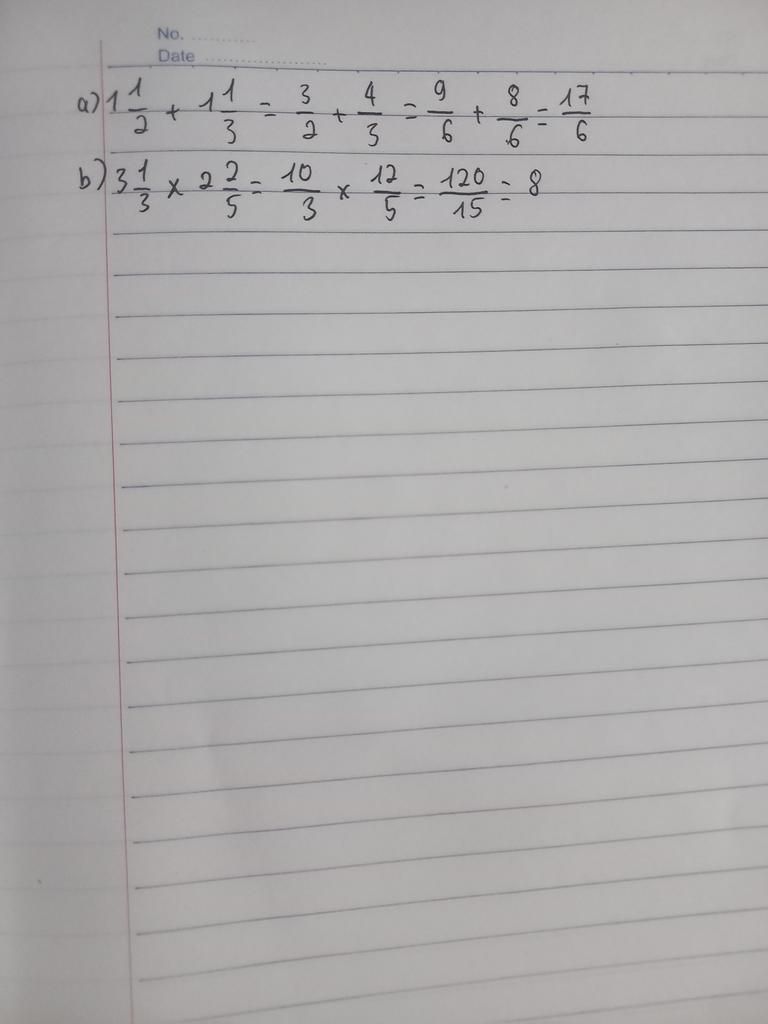 No. ..........
Date ......................
a) 1 1/2 + 1 1/3 = 3/2 + 4/3 = 9/6 + 8/6 = 17/6
b) 3 1/3 x 2 2/5 = 10/3 x 12/5 = 120/15 = 8